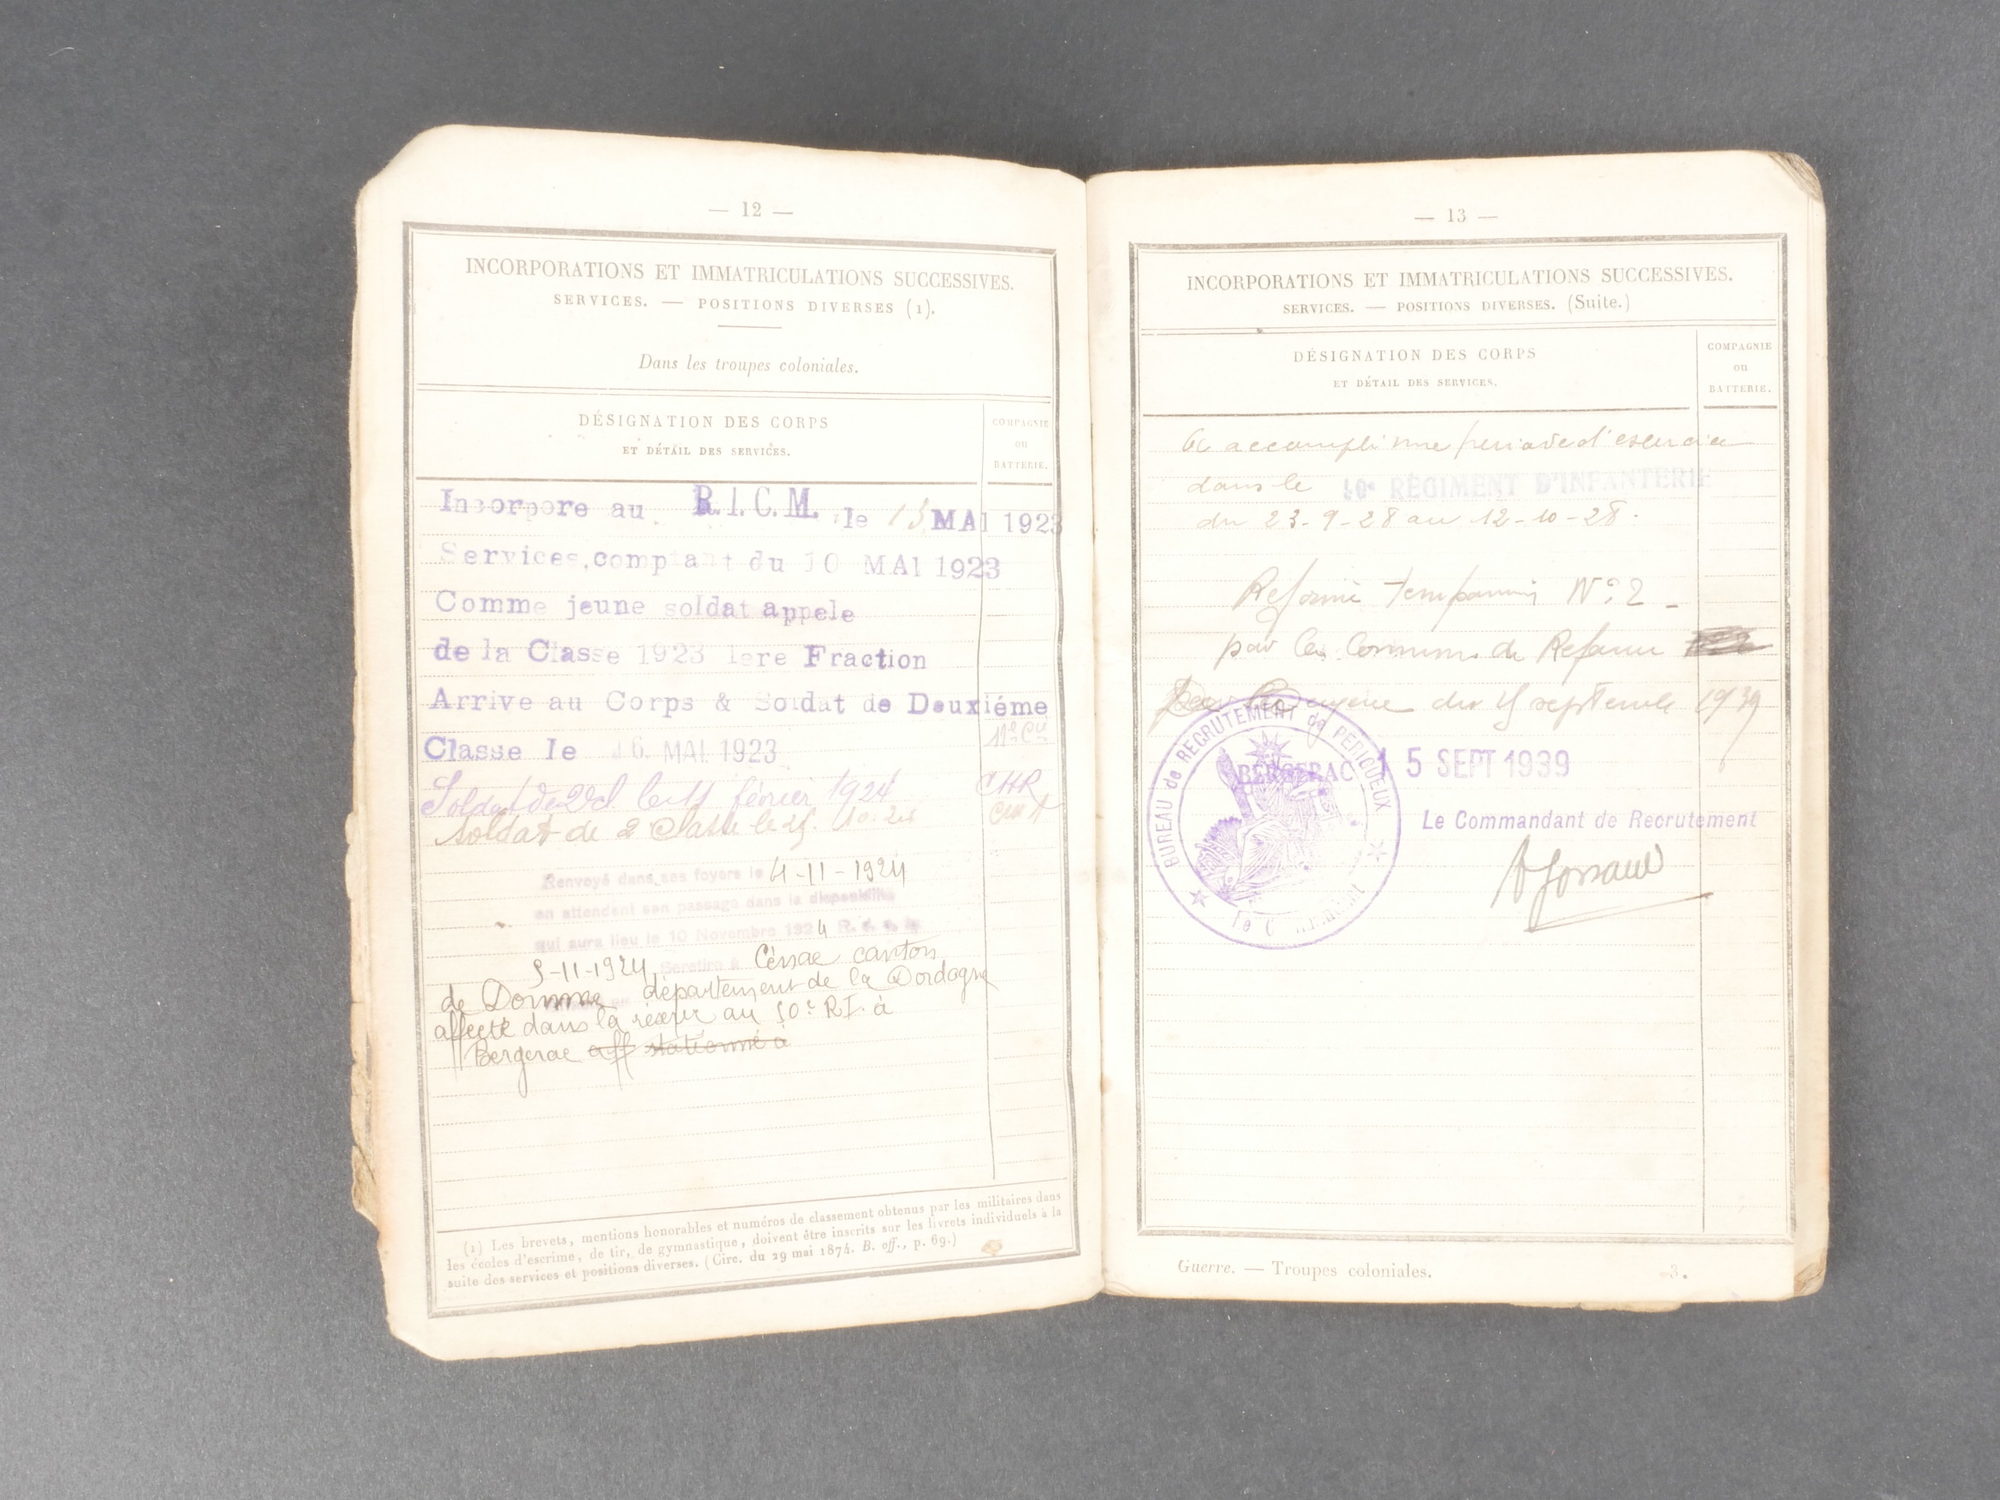 — 12 —
INCORPORATIONS ET IMMATRICULATIONS SUCCESSIVES.
SERVICES. — POSITIONS DIVERSES (1).
Dans les troupes coloniales.
DÉSIGNATION DES CORPS
ET DÉTAIL DES SERVICES.
COMPAGNIE
OU
BATTERIE.
Incorpore au R.I.C.M. le 15 MAI 1923
Services, comptant du 10 MAI 1923
Comme jeune soldat appele
de la Classe 1923 1ere Fraction
Arrive au Corps & Soldat de Deuxiéme
Classe le 16 MAI 1923
Soldat de 2 cl le 11 février 1924 CHR
Soldat de 2 classe le
Renvoyé dans ses foyers le 4-11-1924
en attendant son passage dans la disponibilité
qui aura lieu le 10 Novembre 1924
5-11-1924 Se retire à Cénac canton
de Domme département de la Dordogne
affecté dans la réserve au 50e R.I. à
Bergerac aff stationné à
(1) Les brevets, mentions honorables et numéros de classement obtenus par les militaires dans
les écoles d'escrime, de tir, de gymnastique, doivent être inscrits sur les livrets individuels à la
suite des services et positions diverses. (Circ. du 29 mai 1874. B. off., p. 69.)
— 13 —
INCORPORATIONS ET IMMATRICULATIONS SUCCESSIVES.
SERVICES. — POSITIONS DIVERSES. (Suite.)
DÉSIGNATION DES CORPS
ET DÉTAIL DES SERVICES.
COMPAGNIE
OU
BATTERIE.
a accompli une période d'exercice
dans le 50e RÉGIMENT D'INFANTERIE
du 23-9-28 au 12-10-28.
Réformé temporaire N° 2 -
par la Commission de Réforme
du 15 septembre 1939
BUREAU de RECRUTEMENT de PÉRIGUEUX
BERGERAC 15 SEPT 1939
Le Commandant de Recrutement
Guerre. — Troupes coloniales.
3.